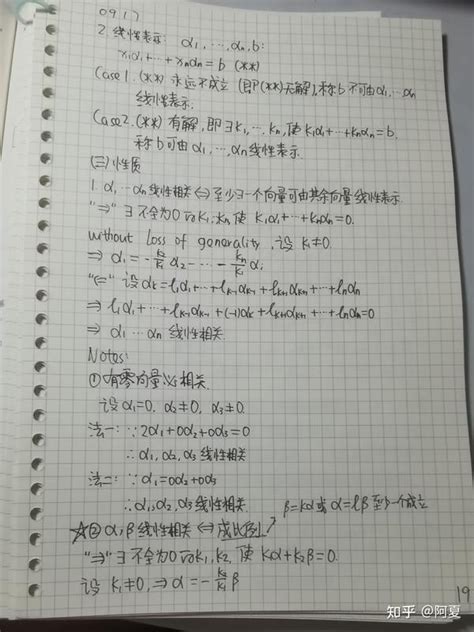 0917
2. 线性表示: α₁,⋯,αn, b:
x₁α₁+⋯+xnαn=b (**)
Case 1. (**) 永远不成立 (即(**)无解), 称b不可由α₁,⋯αn
线性表示.
Case 2. (**) 有解, 即∃k₁,⋯,kn, 使k₁α₁+⋯+knαn=b.
称b可由α₁,⋯,αn线性表示.
(三)性质
1. α₁⋯αn线性相关⇔至少∃一个向量可由其余向量线性表示
"⇒" ∃不全为0的k₁⋯kn, 使 k₁α₁+⋯+knαn=0.
without loss of generality, 设 k₁≠0.
⇒ α₁=-k₂/k₁ α₂-⋯-kn/k₁ α
"⇐" 设αk=l₁α₁+⋯+lk-1αk-1+lk+1αk+1+⋯+lnαn
⇒ l₁α₁+⋯+lk-1αk-1+(-1)αk+lk+1αk+1+⋯+lnαn=0
⇒ α₁⋯αn 线性相关.
Notes:
① 有零向量必相关.
设α₁=0, α₂≠0, α₃≠0.
法一: ∵2α₁+0α₂+0α₃=0
∴α₁,α₂,α₃线性相关
法二: ∵α₁=0α₂+0α₃
∴α₁,α₂,α₃线性相关.
β=kα或α=lβ至少一个成立
☆② α,β线性相关⇔成比例
"⇒" ∃不全为0的k₁,k₂, 使 k₁α+k₂β=0.
设 k₁≠0, ⇒ α=-k₂/k₁ β
19
知乎 @阿夏